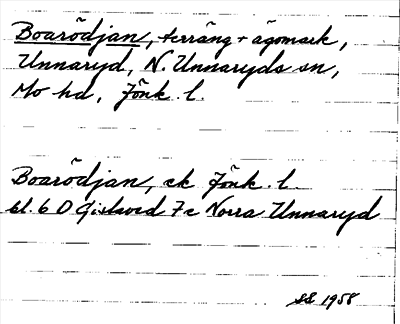 Boarödjan, terräng + ägomark,
Unnaryd, N. Unnaryds sn,
Mo hd, Jönk. l.
Boarödjan, ek Jönk. l.
bl. 6 D Gislaved 7e Norra Unnaryd
SS 1958